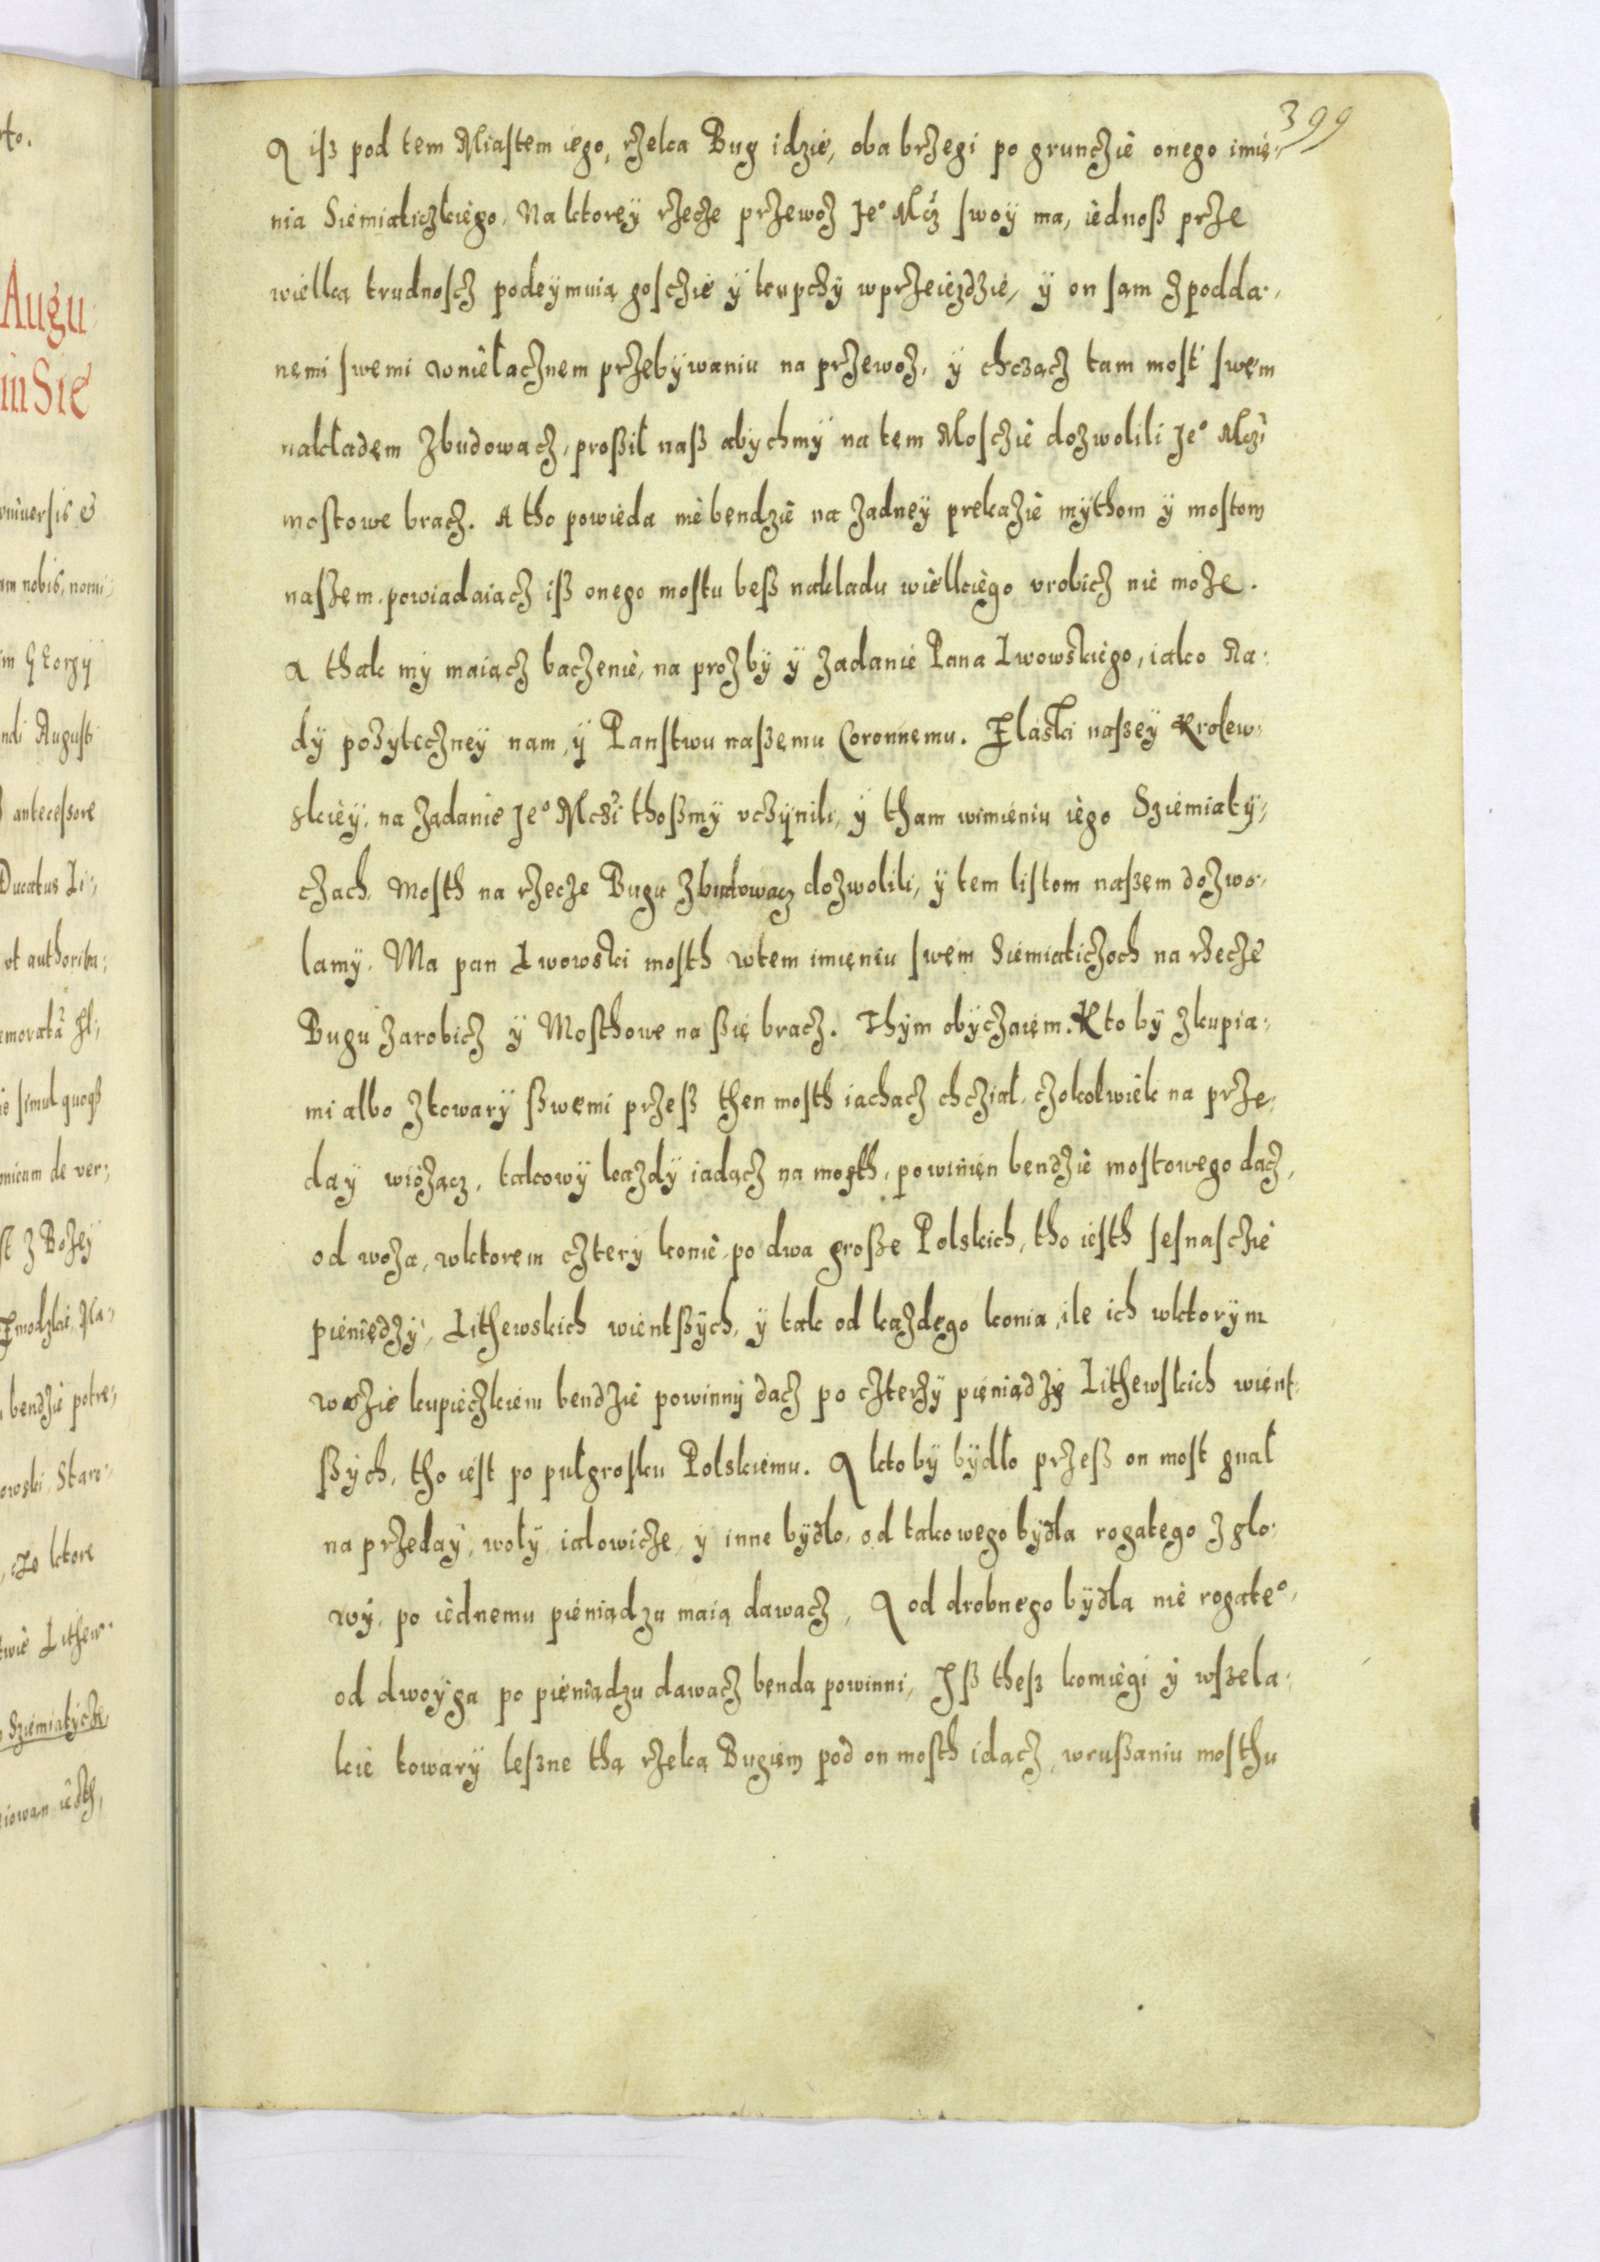 399
A isz pod tem Miastem iego, rzeka Bug idzie, oba brzegi po grunczie onego imię-
nia Siemiatickiego. Na ktorey rzecze przewoz Je° Mcz swoy ma, iednosz prze
wielką trudnoscz podeymuią gosczie y kupczy wprzeiezdzie, y on sam z podda-
nemi swemi wnietacznem przebywaniu na przewoz, y chcząc tam most swem
nakładem zbudowacz, prosził nasz abychmy na tem Mosczie dozwolili Je° Mczi
mostowe bracz. A tho powieda nie bendzie na zadney prekazie mythom y mostom
naszem, powiadaiącz isz onego mostu besz nakladu wielkiego vrobicz nie może.
A thak my maiącz baczenie, na prozby y żadanie Pana Lwowskiego, iako Ra-
dy pozyteczney nam, y Panstwu naszemu Coronnemu. Złaski naszey Krolew-
skiey, na żądanie Je° Mczi thoszmy vczynili, y tham wimieniu iego Sziemiaty-
czach, Mosth na rzecze Bugu zbudowacz dozwolili, y tem listem naszem dozwo-
lamy. Ma pan Lwowski mosth wtem imieniu swem Siemiaticzoch na rzecze
Bugu zarobicz y Mosthowe na szię bracz. Thym obyczaiem. Kto by zkupia-
mi albo ztowary szwemi przesz then mosth iachacz chcział, czokolwiek na prze-
day wiożącz, takowy każdy iadącz na mosth, powinien bendzie mostowego dacz,
od woza, wktorem cztery konie, po dwa grosze Polskich, tho iesth sesnasczie
pieniędzy, Lithewskich wientszych, y tak od każdego konia, ile ich wktorym
wozie kupieczkiem bendzie powinny dacz po czterzy pieniądzę Lithewskich wient-
szych, tho iest po pułgrosku Polskiemu. A kto by bydło przesz on most gnał
na przeday, woły, iałowicze, y inne bydło, od takowego bydła rogatego z gło-
wy, po iednemu pieniądzu maią dawacz, A od drobnego bydła nie rogate°,
od dwoyga po pieniądzu dawacz benda powinni, Isz thesz komiegi y wszela-
kie towary lesne thą rzeką Bugiem pod on mosth idącz, wruszaniu mosthu